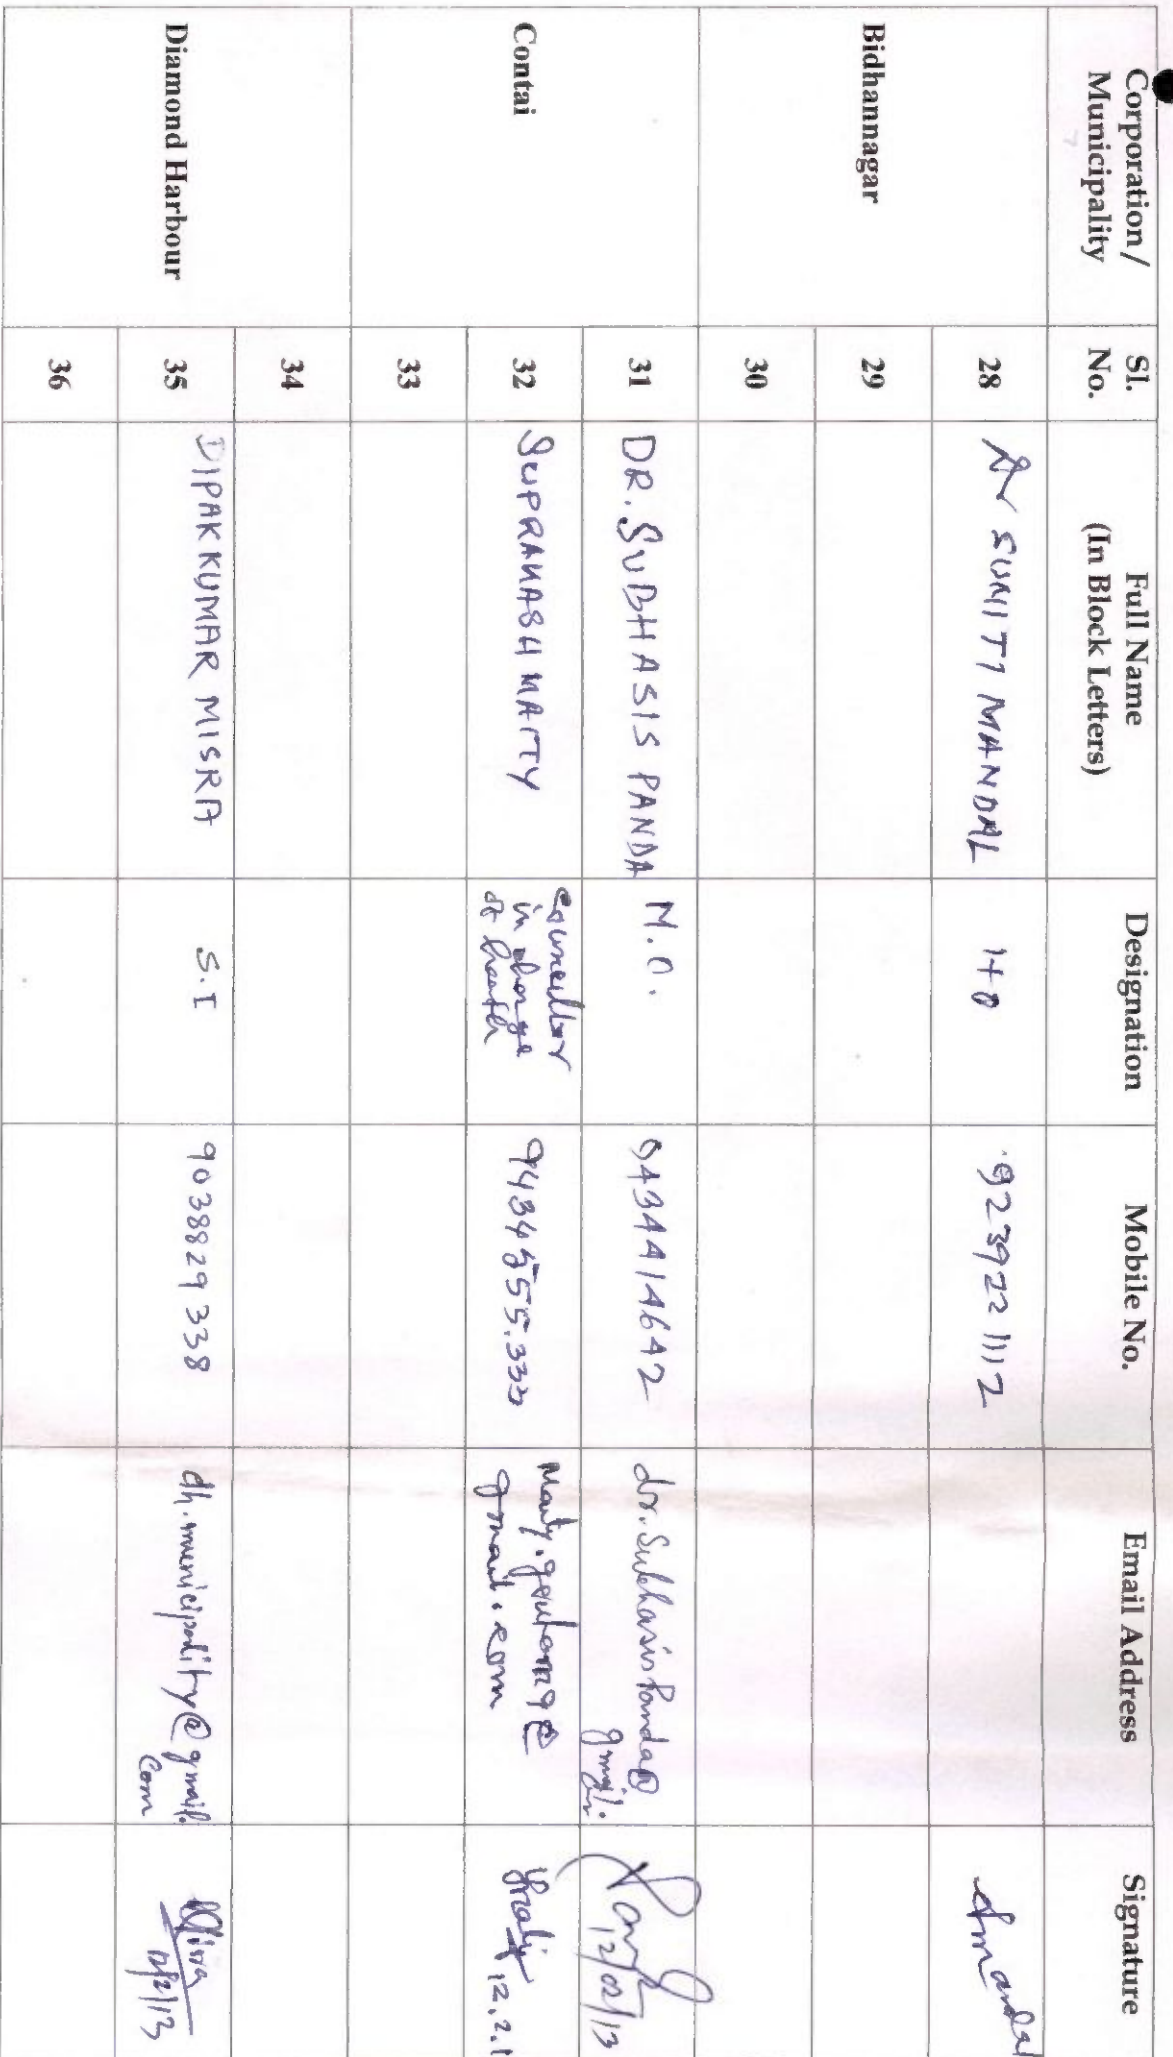 Corporation/
Municipality
Sl.
No.
Full Name
(In Block Letters)
Designation
Mobile No.
Email Address
Signature
Bidhannagar
28
Dr SUNITI MANDAL
HO
9239221112
29
30
Contai
31
DR. SUBHASIS PANDA
M.O.
9434414642
dr.SubhasisPanda@
gmail.
12/02/13
32
SUPRAKASH MAITY
Councillor
in charge
of health
Maity.goutam9@
gmail.com
12.2.1
33
Diamond Harbour
34
35
DIPAK KUMAR MISRA
S.I
9038829338
dh.municipality@gmail.
com
12/2/13
36